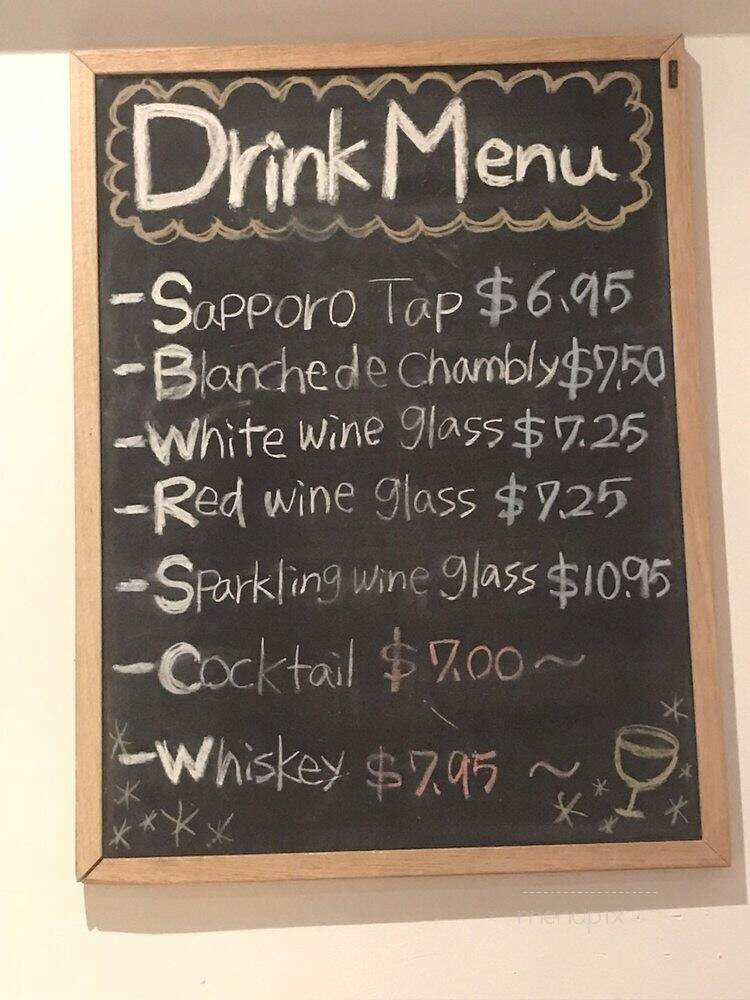 Drink Menu
- Sapporo Tap $6.95
- Blanche de Chambly $7.50
- White wine glass $7.25
- Red wine glass $7.25
- Sparkling wine glass $10.95
- Cocktail $7.00~
- Whiskey $7.95 ~
menupix